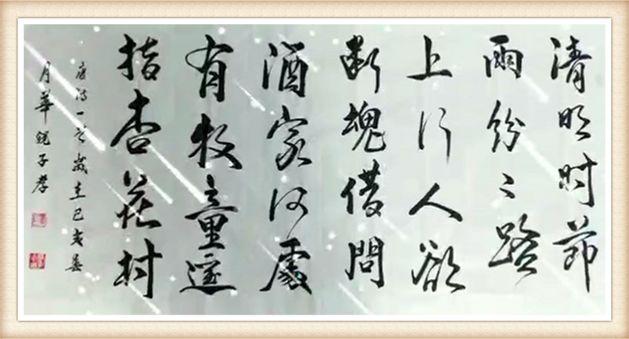 清明时節
雨纷々路
上行人欲
断魂借問
酒家何處
有牧童遥
指杏花村
唐诗一首歲在己亥
月華子孝